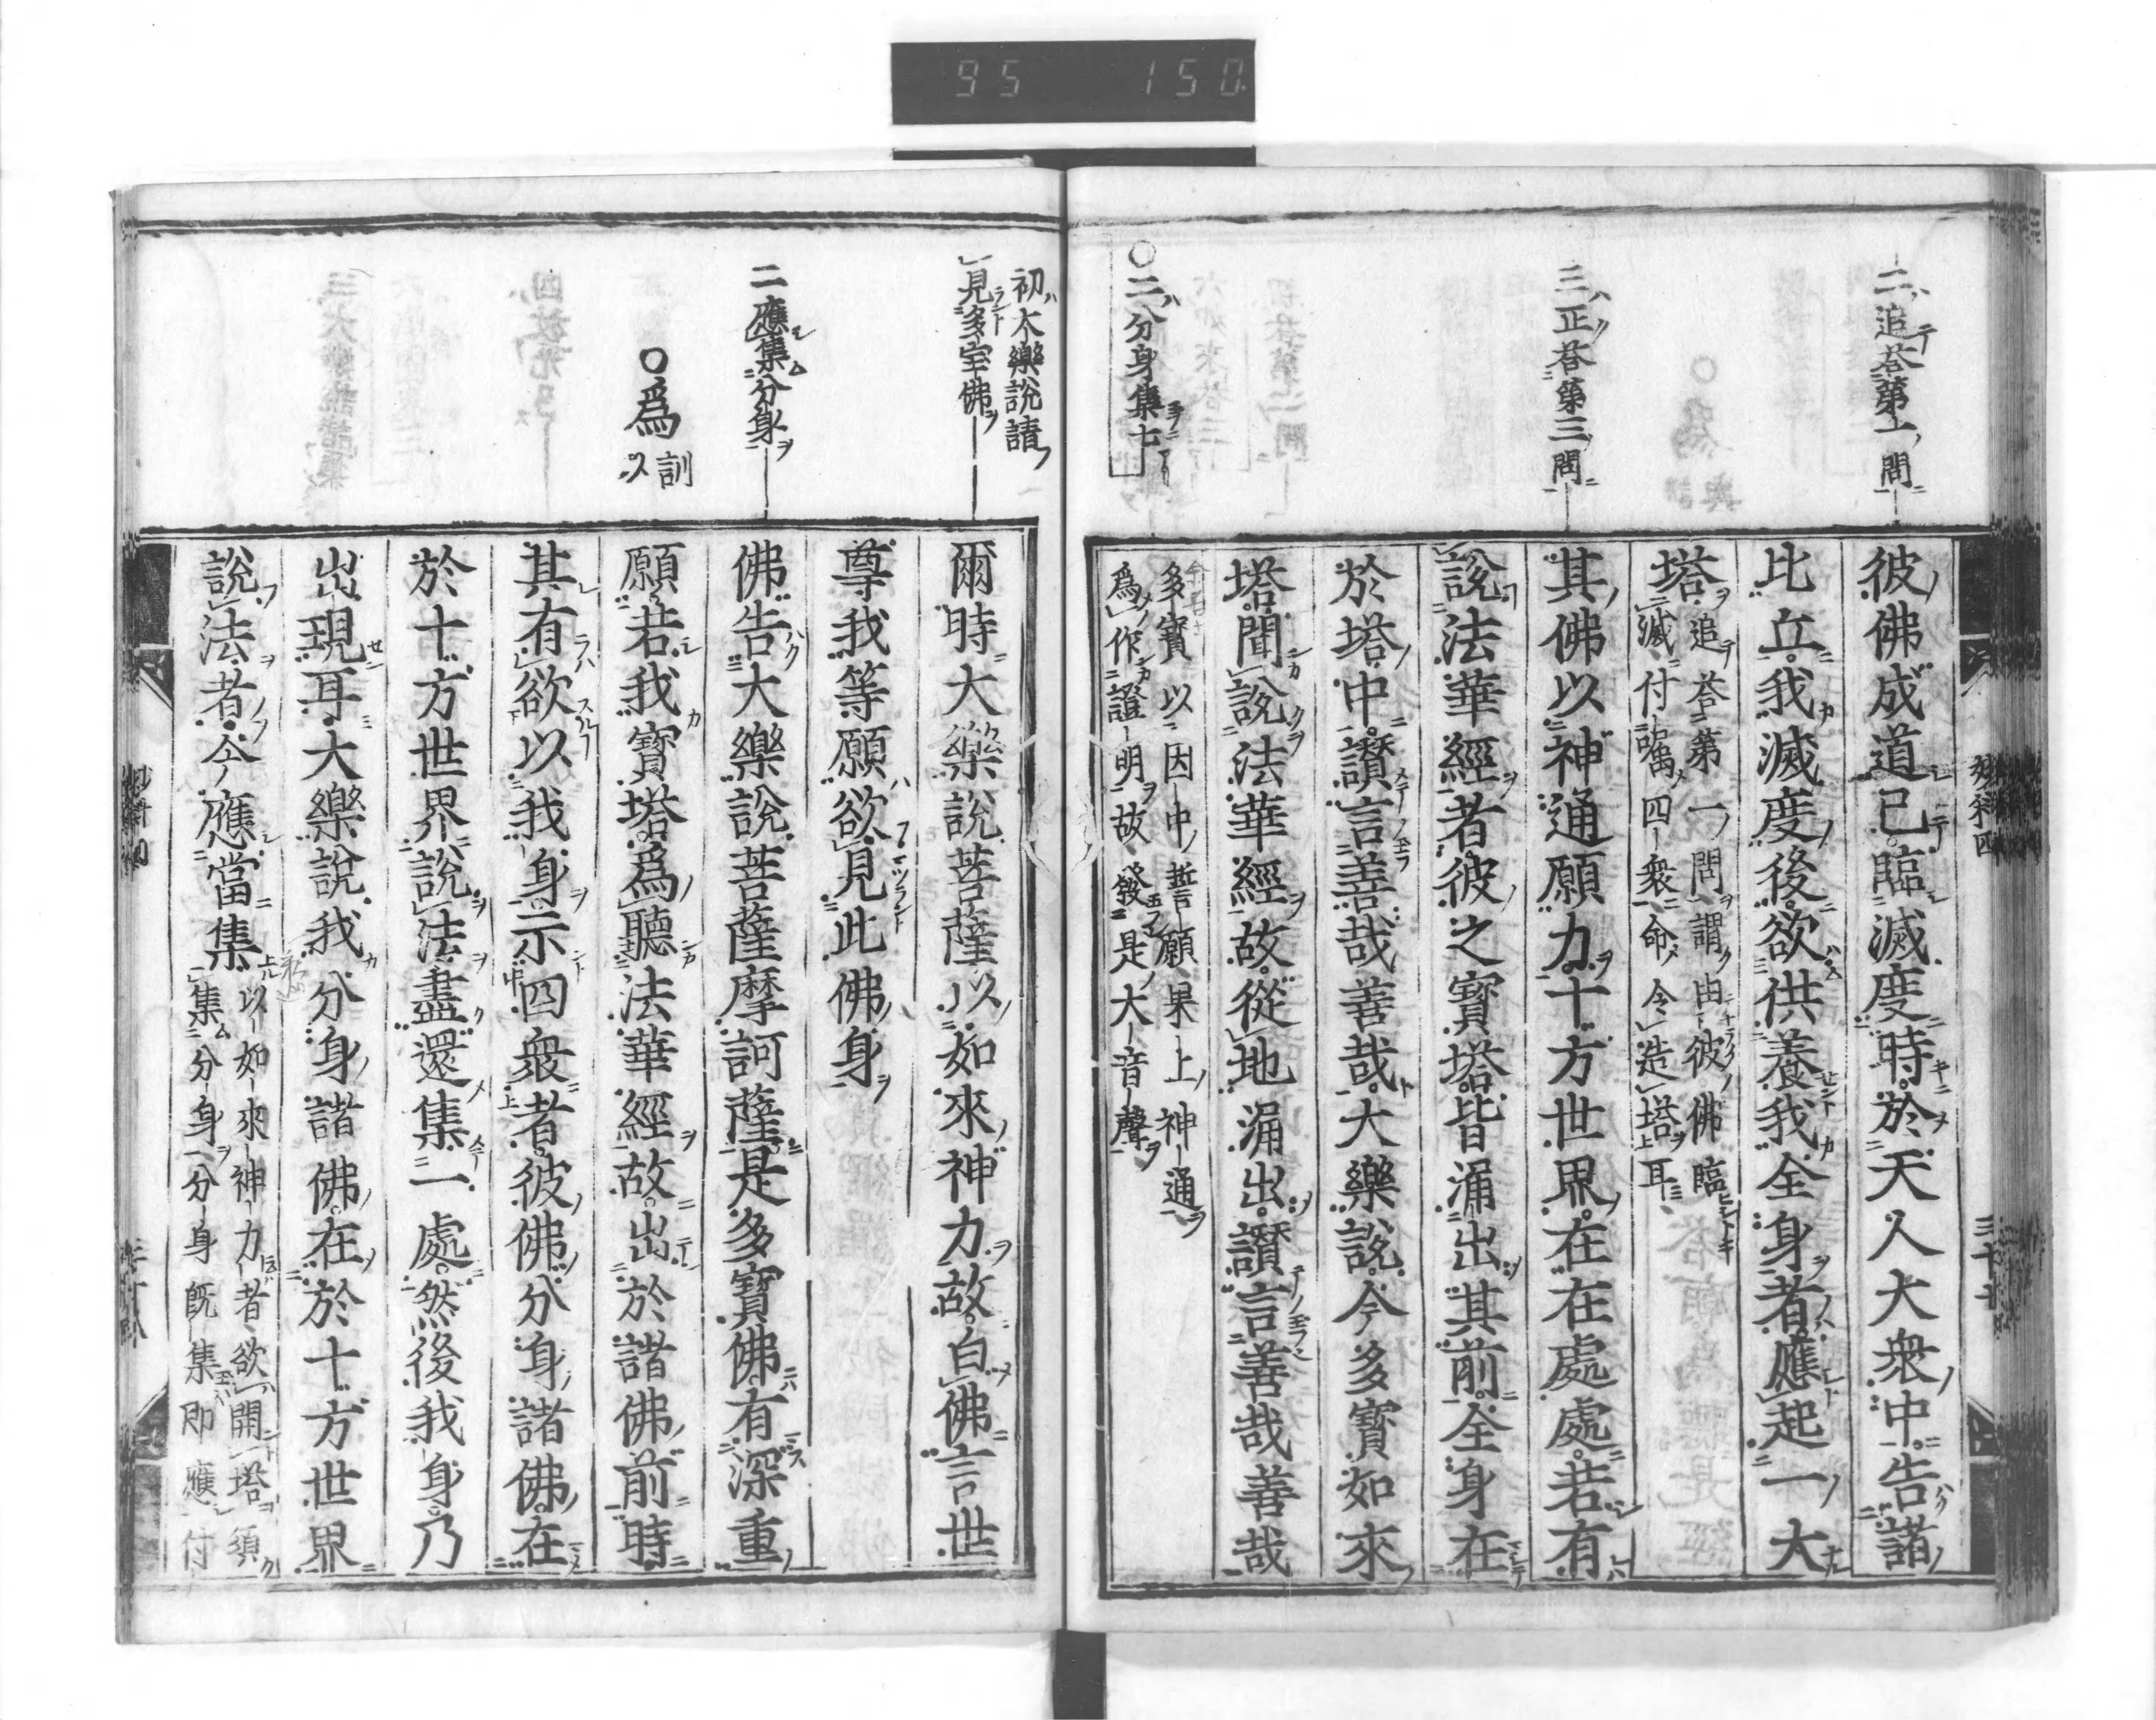 95 150
二追荅第一問
三正荅第三問
○二分身集七
彼佛成道已臨滅度時於天人大衆中告諸
比丘我滅度後欲供養我全身者應起一大
塔
追荅第一問謂由彼佛臨
滅付囑四衆命令造塔耳
其佛以神通願力十方世界在在處處若有
說法華經者彼之寶塔皆涌出其前全身在
於塔中讚言善哉善哉大樂說今多寶如來
塔聞說法華經故從地涌出讚言善哉善哉
多寶以因中誓願果上神通
爲作證明故發是大音聲
初大樂說請
見多宝佛
二應集分身
○爲訓
爾時大樂說菩薩以如來神力故白佛言世
尊我等願欲見此佛身
佛告大樂說菩薩摩訶薩是多寶佛有深重
願若我寶塔爲聽法華經故出於諸佛前時
其有欲以我身示四衆者彼佛分身諸佛在
於十方世界說法盡還集一處然後我身乃
出現耳大樂說我分身諸佛在於十方世界
說法者今應當集
以如來神力者欲開塔須
集分身分身既集即應付